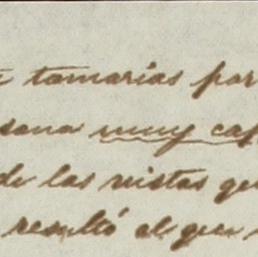 tomarias por
sona muy cap
de las vistas que
resultó al que